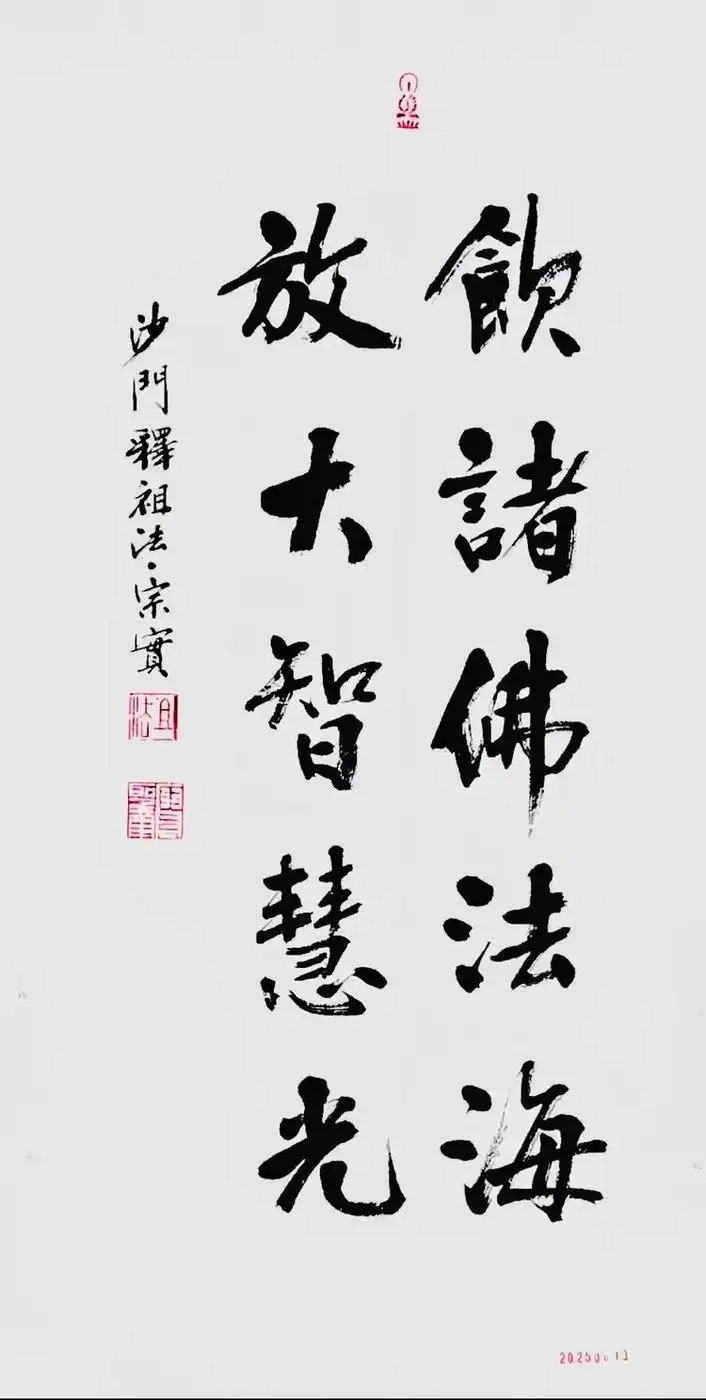 飲諸佛法海
放大智慧光
沙門釋祖法·宗實
祖法